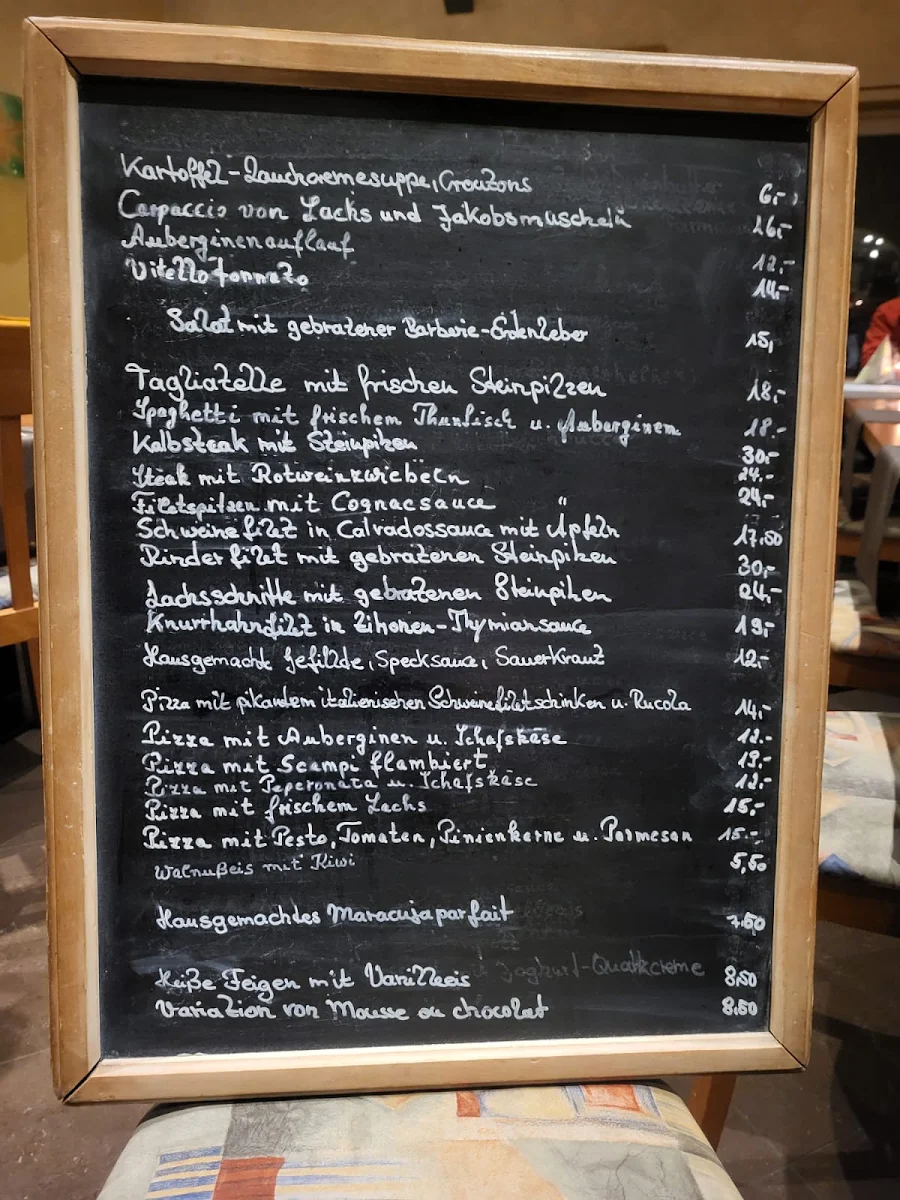 Kartoffel-Lauchcremesuppe, Croutons 6,-
Carpaccio von Lachs und Jakobsmuscheln 16,-
Auberginenauflauf 12,-
Vitello tonnato 14,-
Salat mit gebratener Barberie-Entenleber 15,
Tagliatelle mit frischen Steinpilzen 18,-
Spaghetti mit frischem Thunfisch u. Auberginen 18.-
Kalbsteak mit Steinpilzen 30,-
Steak mit Rotweinzwiebeln 24.-
Filetspitzen mit Cognacsauce " 24,-
Schweinefilet in Calvadossauce mit Äpfeln 17,50
Rinderfilet mit gebratenen Steinpilzen 30,-
Lachsschnitte mit gebratenen Steinpilzen 24,-
Knurrhahnfilet in Zitronen-Thymiansauce 19,-
Hausgemachte Gefillde, Specksauce, Sauerkraut 12,-
Pizza mit pikantem italienischen Schweinefiletschinken u. Rucola 14,-
Pizza mit Auberginen u. Schafskäse 12.-
Pizza mit Scampi flambiert 19.-
Pizza mit Peperonata u. Schafskäse 12.-
Pizza mit frischem Lachs 15,-
Pizza mit Pesto, Tomaten, Pinienkerne u. Parmesan 15.-
Walnußeis mit Kiwi 5,50
Hausgemachtes Maracujaparfait 7.50
Joghurt-Quarkcreme
Heiße Feigen mit Vanilleeis 8,50
Variation von Mousse au chocolat 8.50